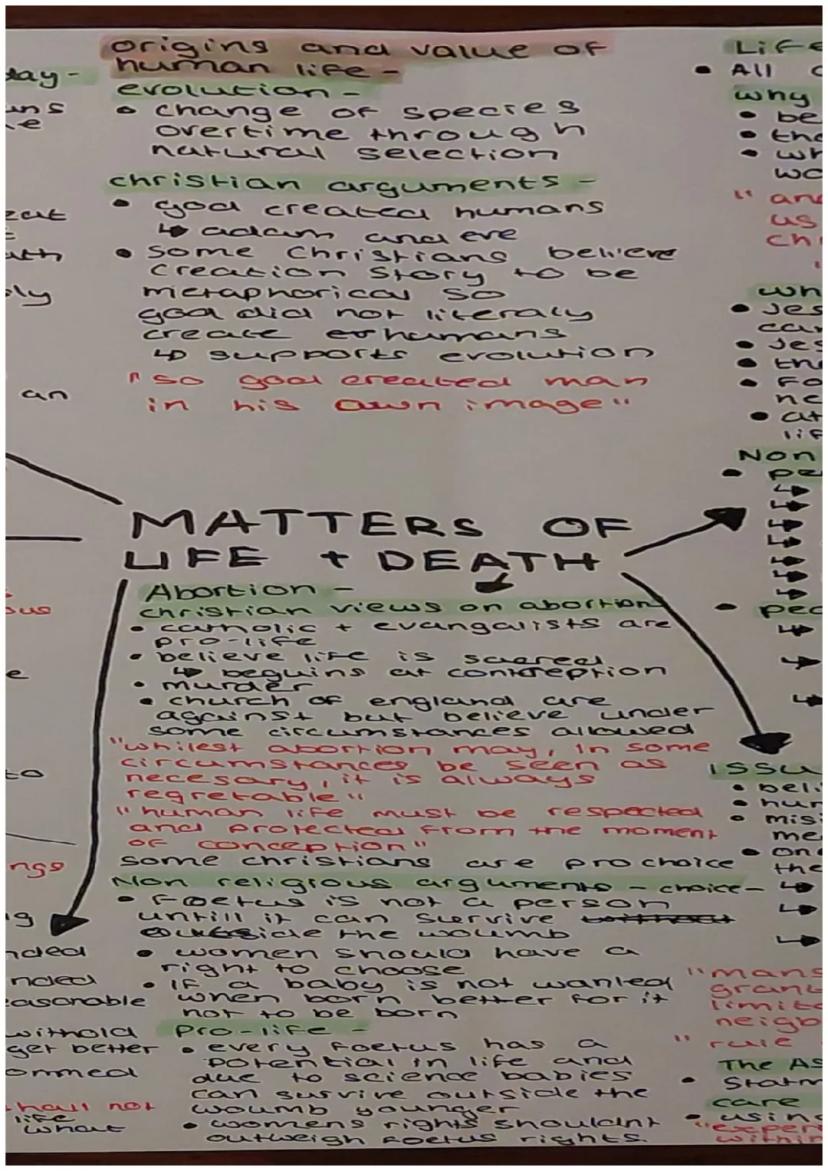 origins and value of
human life -
evolution -
• change of species
overtime through
natural selection
christian arguments -
• god created humans
↳ adam and eve
• some christians believe
creation story to be
metaphorical so
god did not literaly
create humans
↳ supports evolution
"so god created man
in his own image"
MATTERS OF
LIFE + DEATH
Abortion -
christian views on abortion
• catholic + evangalists are
pro-life
• believe life is sacred
↳ beguins at conception
• murder
• church of england are
against but believe under
some circumstances allowed
"whilest abortion may, in some
circumstances be seen as
necessary, it is always
regretable"
"human life must be respected
and protected from the moment
of conception"
some christians are pro choice
Non religious arguments - choice -
• Foetus is not a person
untill it can survive
outside the woumb
• women should have a
right to choose
• if a baby is not wanted
when born better for it
not to be born
pro-life -
• every foetus has a
potential in life and
due to science babies
can survive outside the
woumb younger
• womens rights shouldnt
outweigh foetus rights.
an
to
nded
easonable
withold
get better
ommed
hall not
life
what
Life
• All
why
• be
Non
issu
• bel
• hur
• mis
me
• on
the
"mans
grant
limite
neigb
" rule
The As
• Statm
care
• using
"exper
within